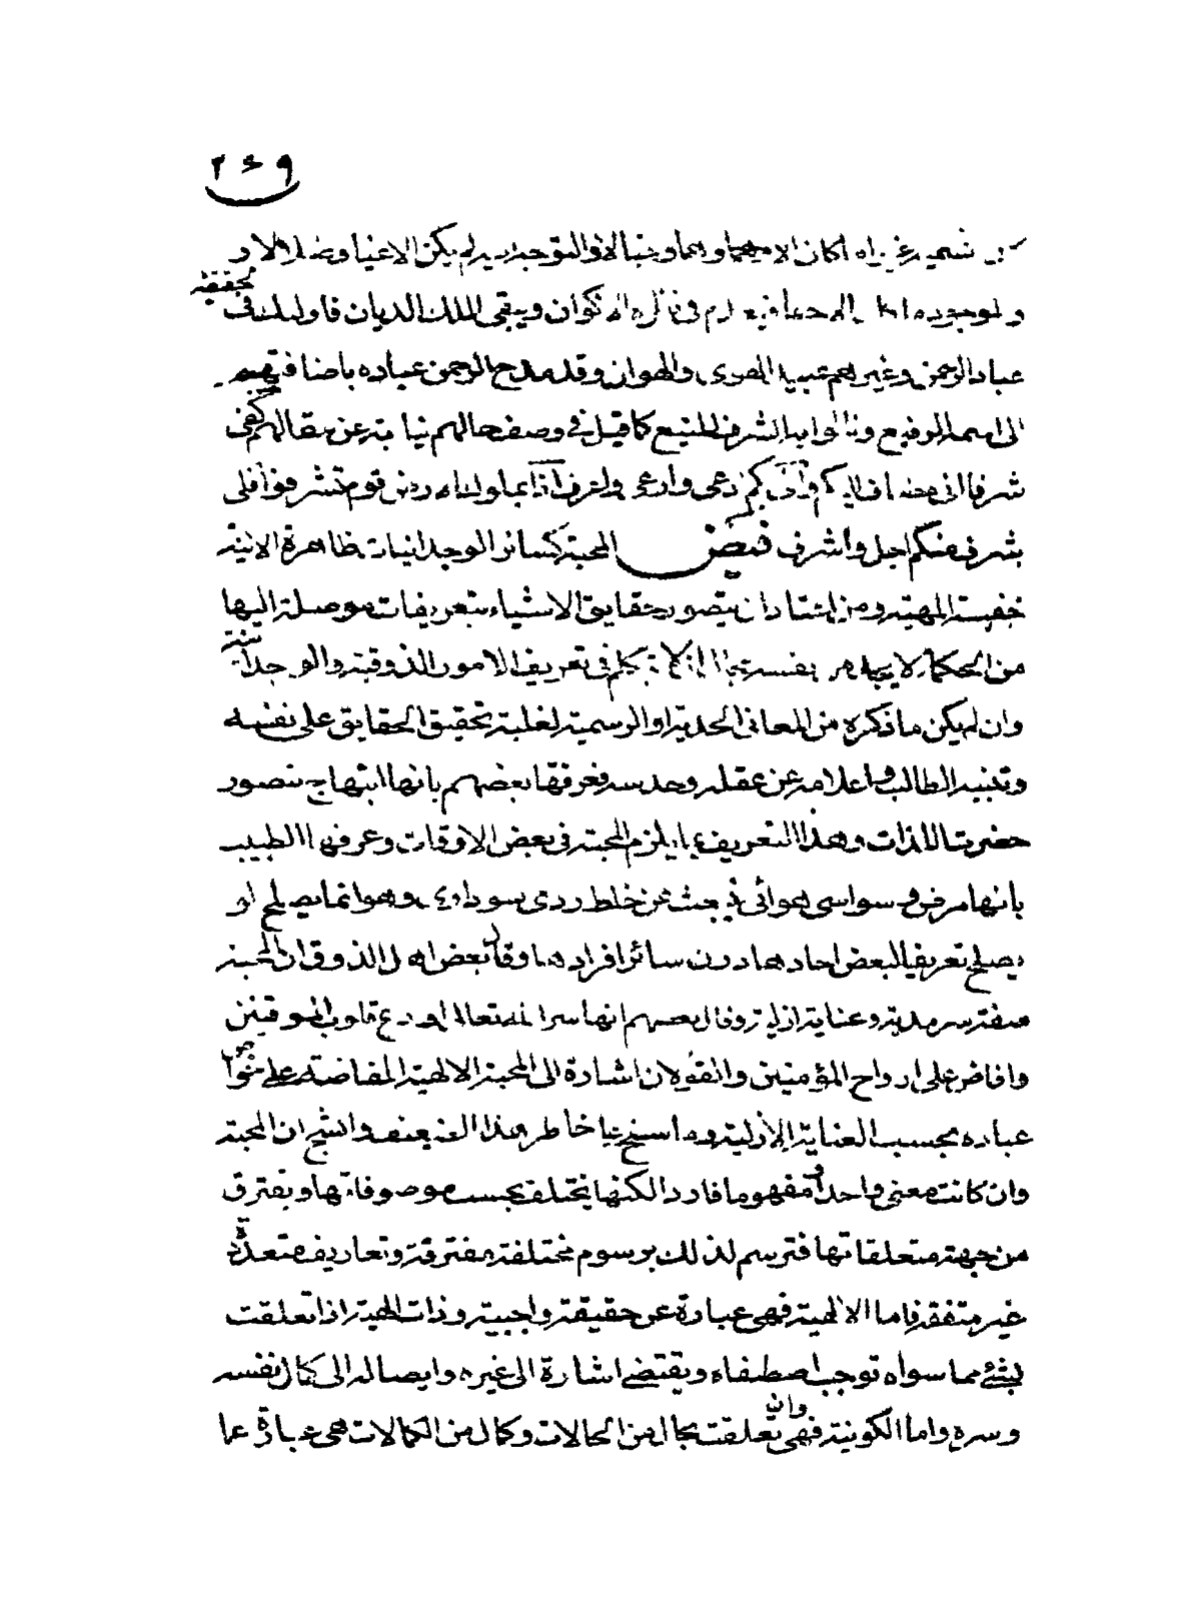 ٢٤٩
كان الا
لم يكن الاغيا
ويبقى الملك الديان فاولئك في
بحقيقة
عباد الرحمن وغيرهم عبيد الهوى والهوان وقد مدح الرحمن عباده باضافتهم
الى اسمه الرفيع ونالوا به الشرف المنيع كما قيل في وصف حالهم نيابة عن مقالهم كفى
شرفا اني مضاف اليكم واني بكم ادعى وارعى واعرف اذا بملوك الارض قوم تشرفوا فلي
شرف منكم اجل واشرف فيض المحبة كسائر الوجدانيات ظاهرة الانية
خفية المهية ومن اعتاد ان يتصور حقايق الاشياء بتعريفات موصلة اليها
من الحكماء لا في تعريف الامور الذوقية والوجدانية
وان لم يكن ما ذكره من المعاني الحدية او الرسمية لغلبة تحقيق الحقايق على نفسه
وتنبيه الطالب واعلامه عن عقله وحدسه فعرفها بعضهم بانها ابتهاج بتصور
حضرت الذات وهذا التعريف بما يلزم المحبة في بعض الاوقات وعرفها الطبيب
بانها مرض وسواسى هوائى ينبعث عن خلط ردى سوداءى وهو انما يصلح او
يصلح تعريفا لبعض احادها دون سائر افرادها وقال بعض اهل الذوق ان المحبة
صفة سرمدية وعناية ازلية وقال بعضهم انها سر الله تعالى اودع قلوب الموقنين
وافاض على ارواح المؤمنين والقولان اشارة الى المحبة الالهية المفاضة على خواص
عباده بحسب العناية الازلية وما سنح بخاطر هذا الضعيف وانشج ان المحبة
وان كانت معنى واحدا ومفهوما فاردا لكنها يختلف بحسب موصوفاتها ويفترق
من جهة متعلقاتها فترسم لذلك برسوم مختلفة مفترقة وتعاريف متعددة
غير متفقة فاما الالهية فهى عبارة عن حقيقة واجبية وذات الهية اذا تعلقت
بشئ مما سواه توجب اصطفاه ويقتضى اشارة الى غيره وايصاله الى كمال نفسه
وسره واما الكونية فهى وان تعلقت بحال من الحالات وكمال من الكمالات هى عبارة عما